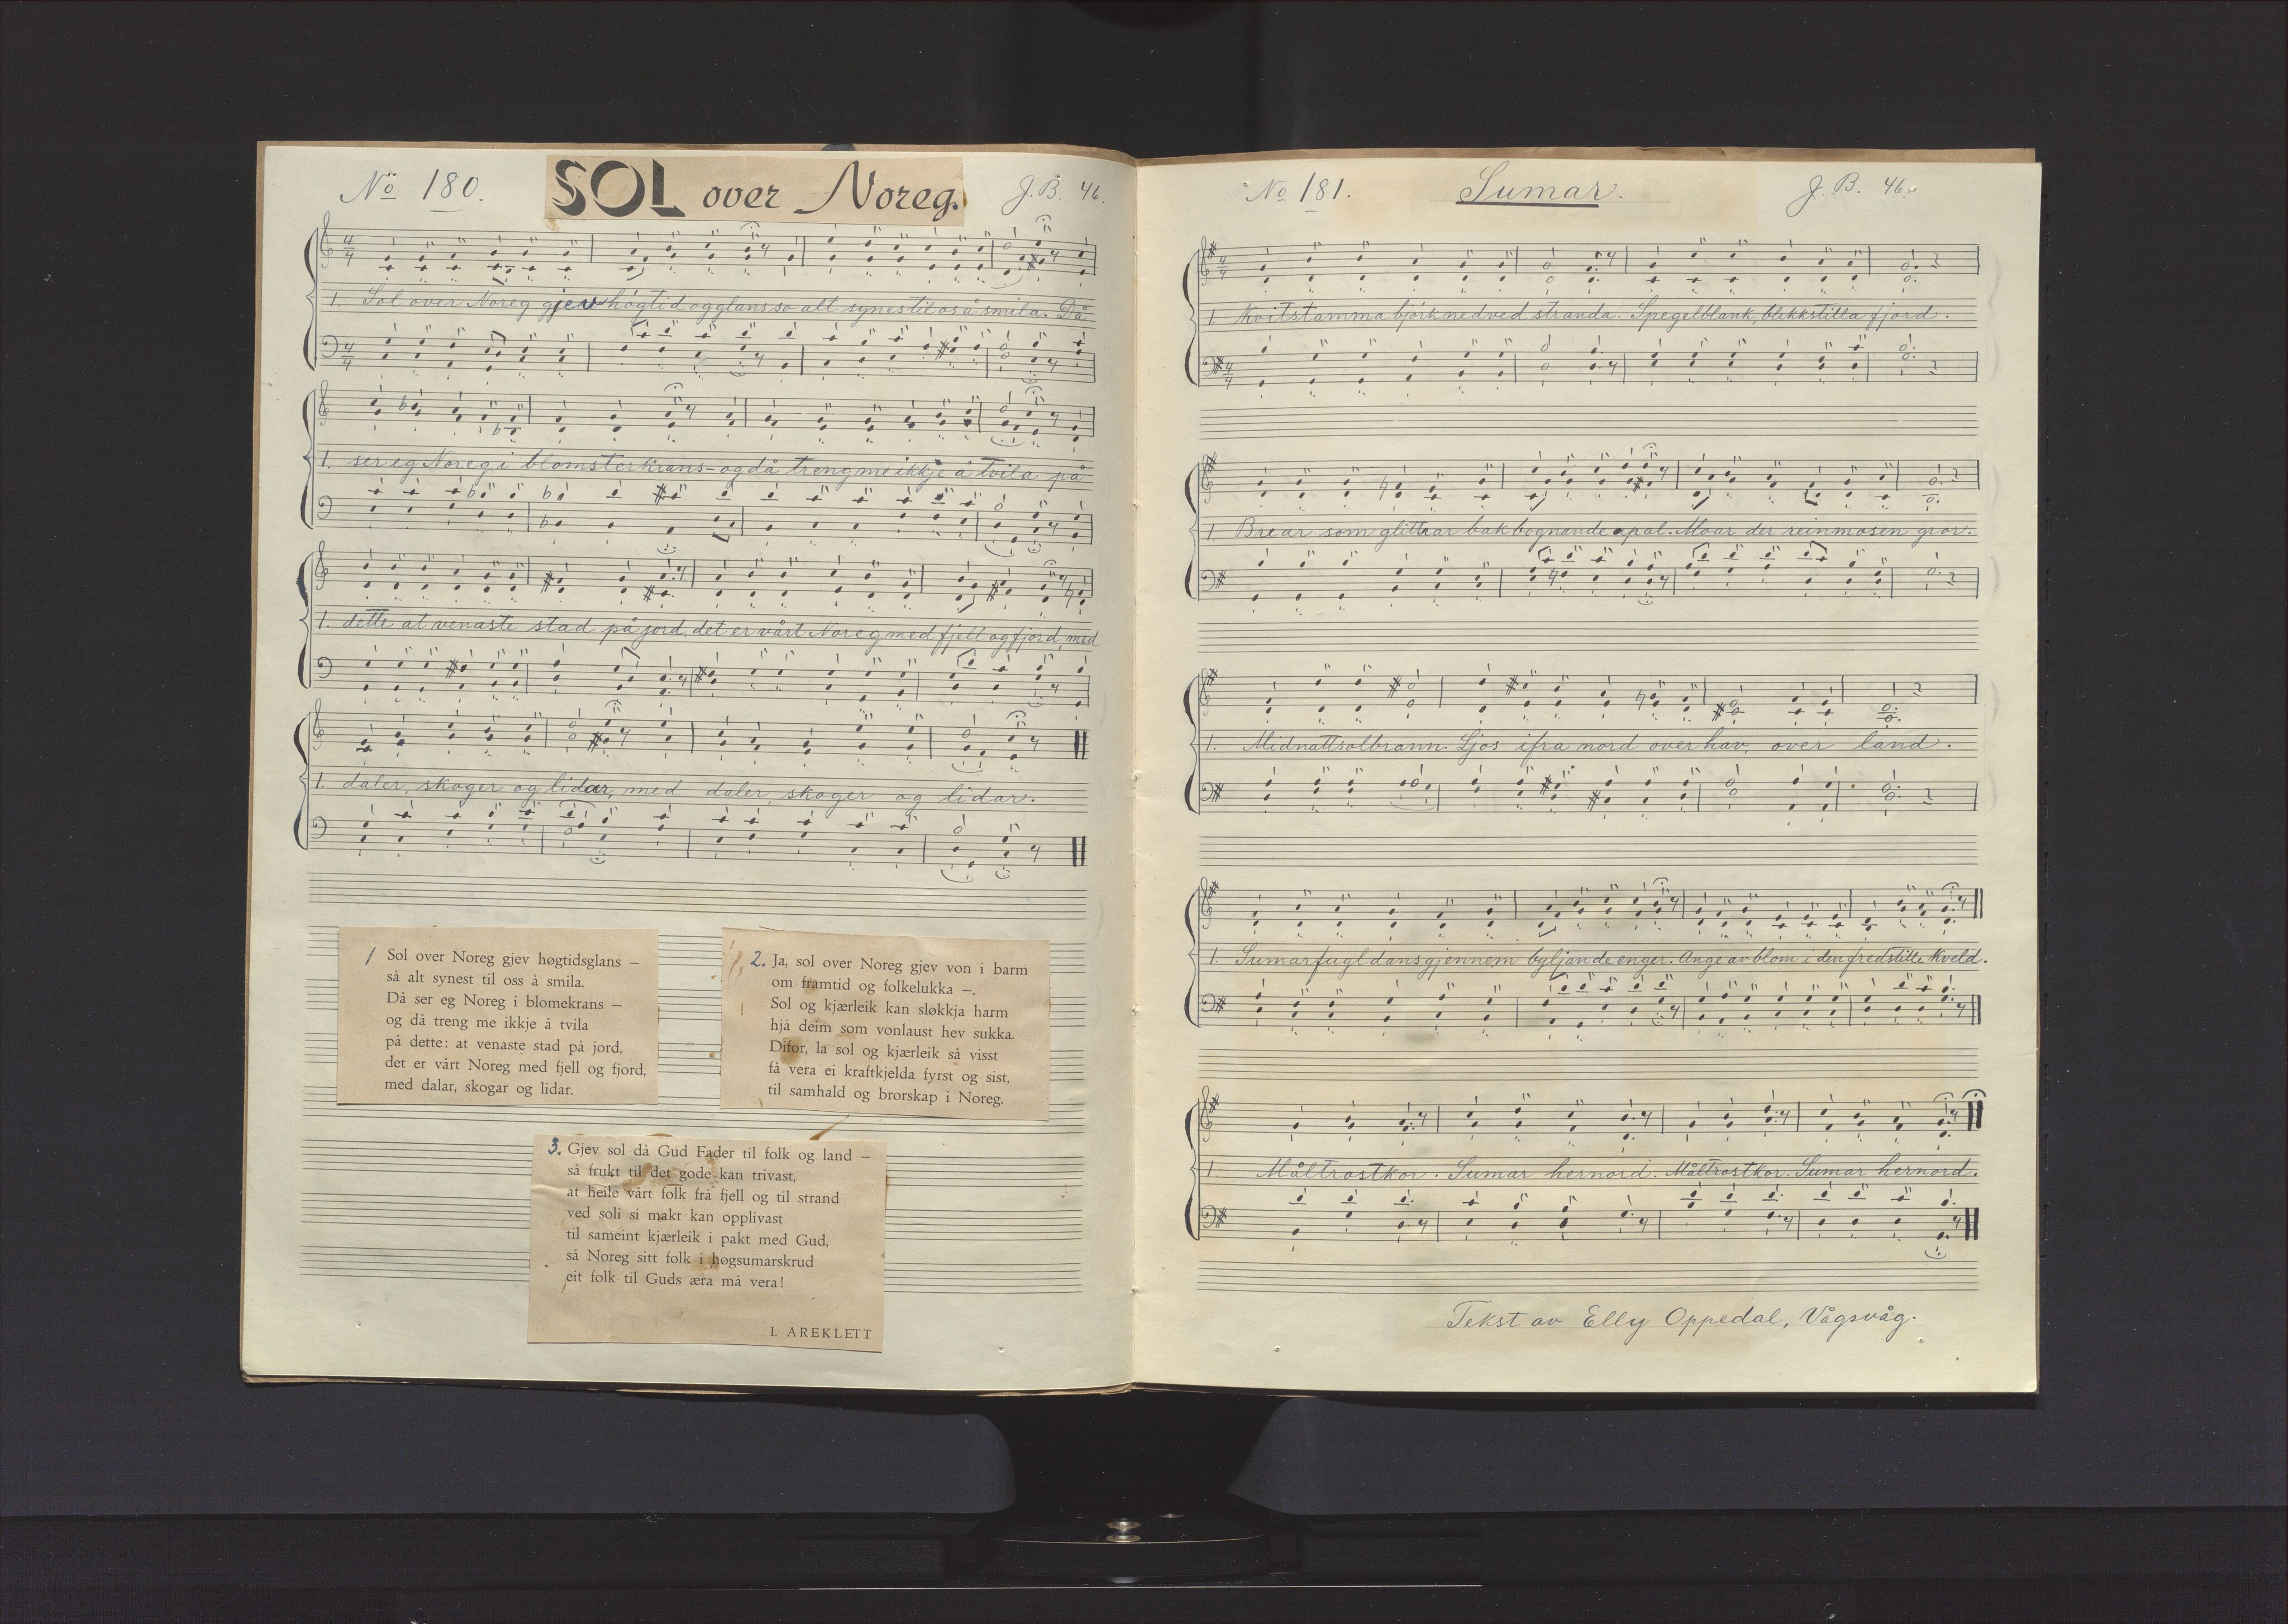 No 180.
SOL over Noreg.
J. B. 46.
1. Sol over Noreg gjev høgtid og glans so alt synes til os å smila. Då
1. ser eg Noreg i blomsterkrans – og då treng me ikkje å tvila på
1. dette at venaste stad på jord, det er vårt Noreg med fjell og fjord, med
1. daler, skoger og lidar, med daler, skoger og lidar.
1 Sol over Noreg gjev høgtidsglans –
så alt synest til oss å smila.
Då ser eg Noreg i blomekrans –
og då treng me ikkje å tvila
på dette: at venaste stad på jord,
det er vårt Noreg med fjell og fjord,
med dalar, skogar og lidar.
2. Ja, sol over Noreg gjev von i barm
om framtid og folkelukka –.
Sol og kjærleik kan sløkkja harm
hjå deim som vonlaust hev sukka.
Difor, la sol og kjærleik så visst
få vera ei kraftkjelda fyrst og sist,
til samhald og brorskap i Noreg.
3. Gjev sol då Gud Fader til folk og land –
så frukt til det gode kan trivast,
at heile vårt folk frå fjell og til strand
ved soli si makt kan opplivast
til sameint kjærleik i pakt med Gud,
så Noreg sitt folk i høgsumarskrud
eit folk til Guds æra må vera!
I. AREKLETT
No 181.
Sumar.
J. B. 46.
1. Kvitstamma bjørk ned ved stranda. Spegelblank, blikkstilla fjord.
1. Brear som glittrar bak bognande apal. Moar der reinmosen gror.
1. Midnattsolbrann. Ljos ifra nord over hav, over land.
1. Sumarfugldans gjennem byljande enger. Ange av blom i den fredstille kveld.
1. Måltrostkor. Sumar hernord. Måltrostkor. Sumar hernord.
Tekst av Elly Oppedal, Vågsvåg.